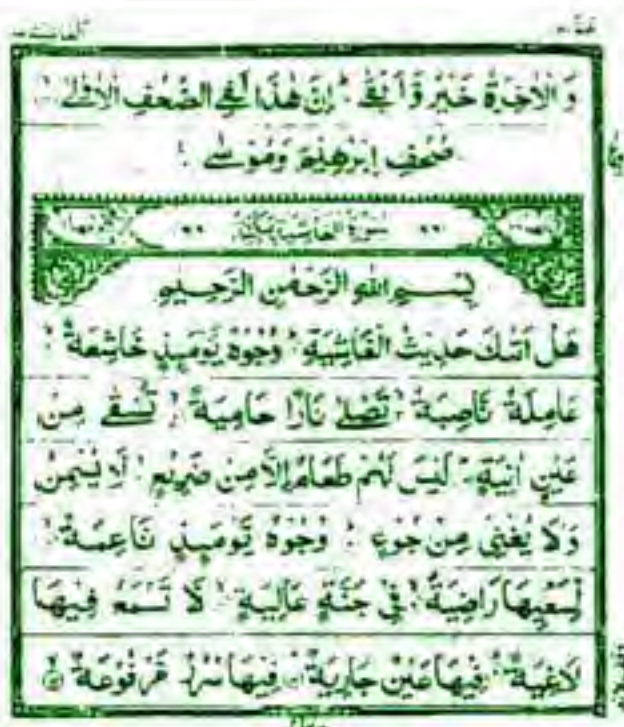 الغاشية ٨٨
عمّ ٣٠
وَالْاٰخِرَةُ خَيْرٌ وَّاَبْقٰى ؕ اِنَّ هٰذَا لَفِى الصُّحُفِ الْاُوْلٰى ۙ
صُحُفِ اِبْرٰهِيْمَ وَمُوْسٰى
سُوْرَةُ الْغَاشِيَةِ مَكِّيَّةٌ
بِسْمِ اللّٰهِ الرَّحْمٰنِ الرَّحِيْمِ
هَلْ اَتٰىكَ حَدِيْثُ الْغَاشِيَةِ ؕ وُجُوْهٌ يَّوْمَىِٕذٍ خَاشِعَةٌ ۙ
عَامِلَةٌ نَّاصِبَةٌ ۙ تَصْلٰى نَارًا حَامِيَةً ۙ تُسْقٰى مِنْ
عَيْنٍ اٰنِيَةٍ ؕ لَيْسَ لَهُمْ طَعَامٌ اِلَّا مِنْ ضَرِيْعٍ ۙ لَّا يُسْمِنُ
وَلَا يُغْنِىْ مِنْ جُوْعٍ ؕ وُجُوْهٌ يَّوْمَىِٕذٍ نَّاعِمَةٌ ۙ
لِّسَعْيِهَا رَاضِيَةٌ ۙ فِىْ جَنَّةٍ عَالِيَةٍ ۙ لَّا تَسْمَعُ فِيْهَا
لَاغِيَةً ؕ فِيْهَا عَيْنٌ جَارِيَةٌ ۘ فِيْهَا سُرُرٌ مَّرْفُوْعَةٌ ۙ